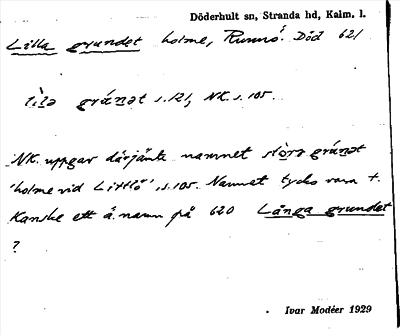 Döderhult sn, Stranda hd, Kalm. l.
Lilla grundet holme, Runnö. Död 621
lìlə gránət s.121, NK. s. 105.
NK. uppgav därjämte namnet stòrə gránət
'holme vid Littlö', s. 105. Namnet tycks vara +.
Kanske ett ä. namn på 620 Långa grundet
?
Ivar Modéer 1929